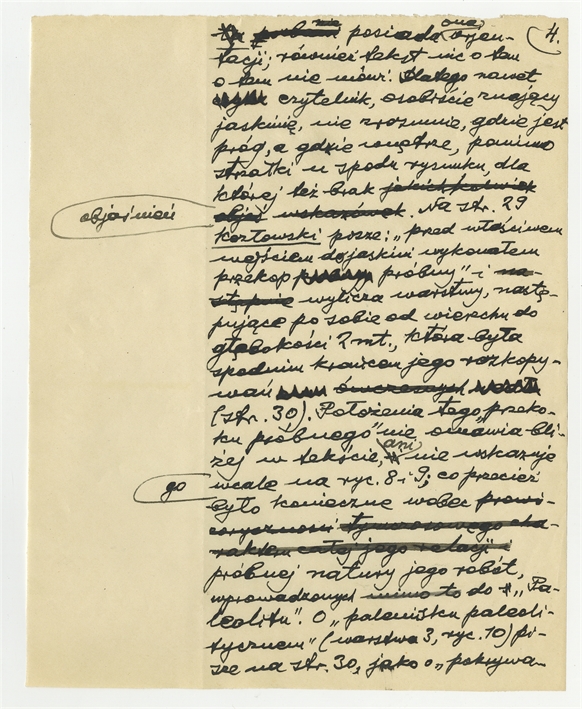 posiada ona orjen- 4.
tacji; również tekst nic o tem
o tem nie mówi. Dlatego nawet
czytelnik, osobiście znający
jaskinię, nie zrozumie, gdzie jest
próg, a gdzie wnętrze, pomimo
strzałki u spodu rysunku, dla
której też brak jakichkolwiek
objaśnień
objaś wskazówek. Na str. 29
Kozłowski pisze: „przed właściwem
wejściem do jaskini wykonałem
przekop próbny" i na-
stępnie wylicza warstwy, nastę-
pujące po sobie od wierzchu do
głębokości 2 mt., która była
spodnim krańcem jego rozkopy-
wań ówczesnych
(str. 30). Położenia tego „przeko-
pu próbnego" nie omawia bli-
żej w tekście, ani nie wskazuje
go
wcale na ryc. 8 i 9; co przecież
było konieczne wobec prowi-
zoryczności tymczasowego cha-
rakteru całej jego relacji i
próbnej natury jego robót,
wprowadzonych mimo to do „Pa-
leolitu". O „palenisku paleoli-
tycznem" (warstwa 3, ryc. 10) pi-
sze na str. 30, jako o „pokrywa-